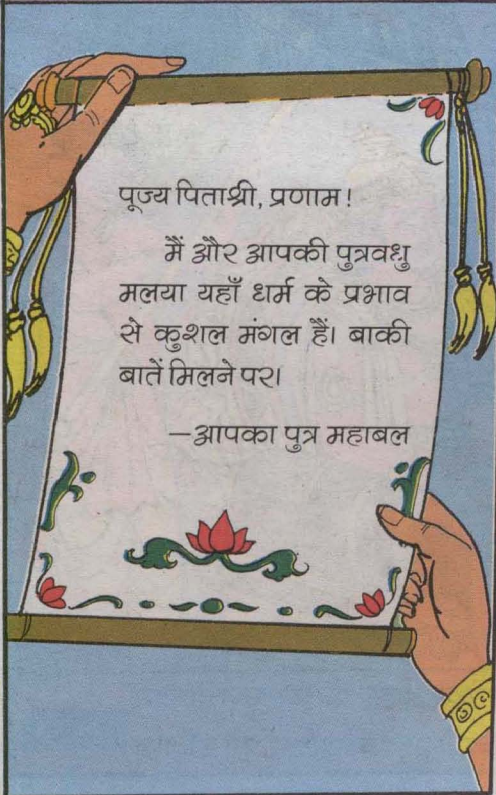 पूज्य पिताश्री, प्रणाम!
मैं और आपकी पुत्रवधु
मलया यहाँ धर्म के प्रभाव
से कुशल मंगल हैं। बाकी
बातें मिलने पर।
—आपका पुत्र महाबल